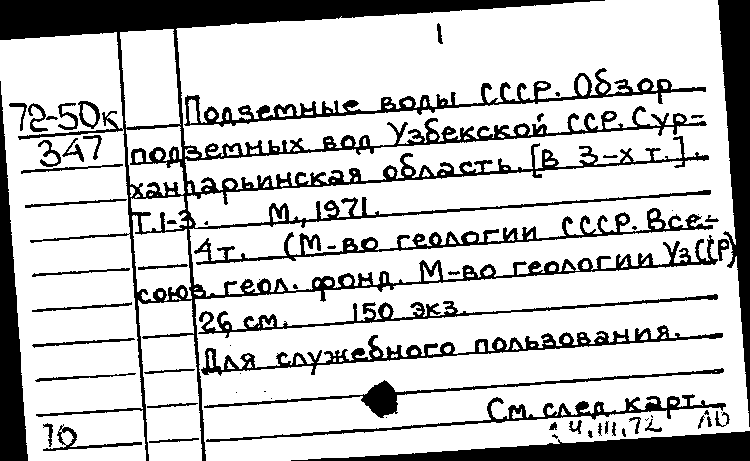 1
72-50к
347
Подземные воды СССР. Обзор
подземных вод Узбекской ССР. Сур-
хандарьинская область. [В 3-х т.].
Т.1-3. М., 1971.
4т. (М-во геологии СССР. Все-
союз. геол. фонд. М-во геологии УзССР)
26 см. 150 экз.
Для служебного пользования.
См. след. карт.
10
4,III,72